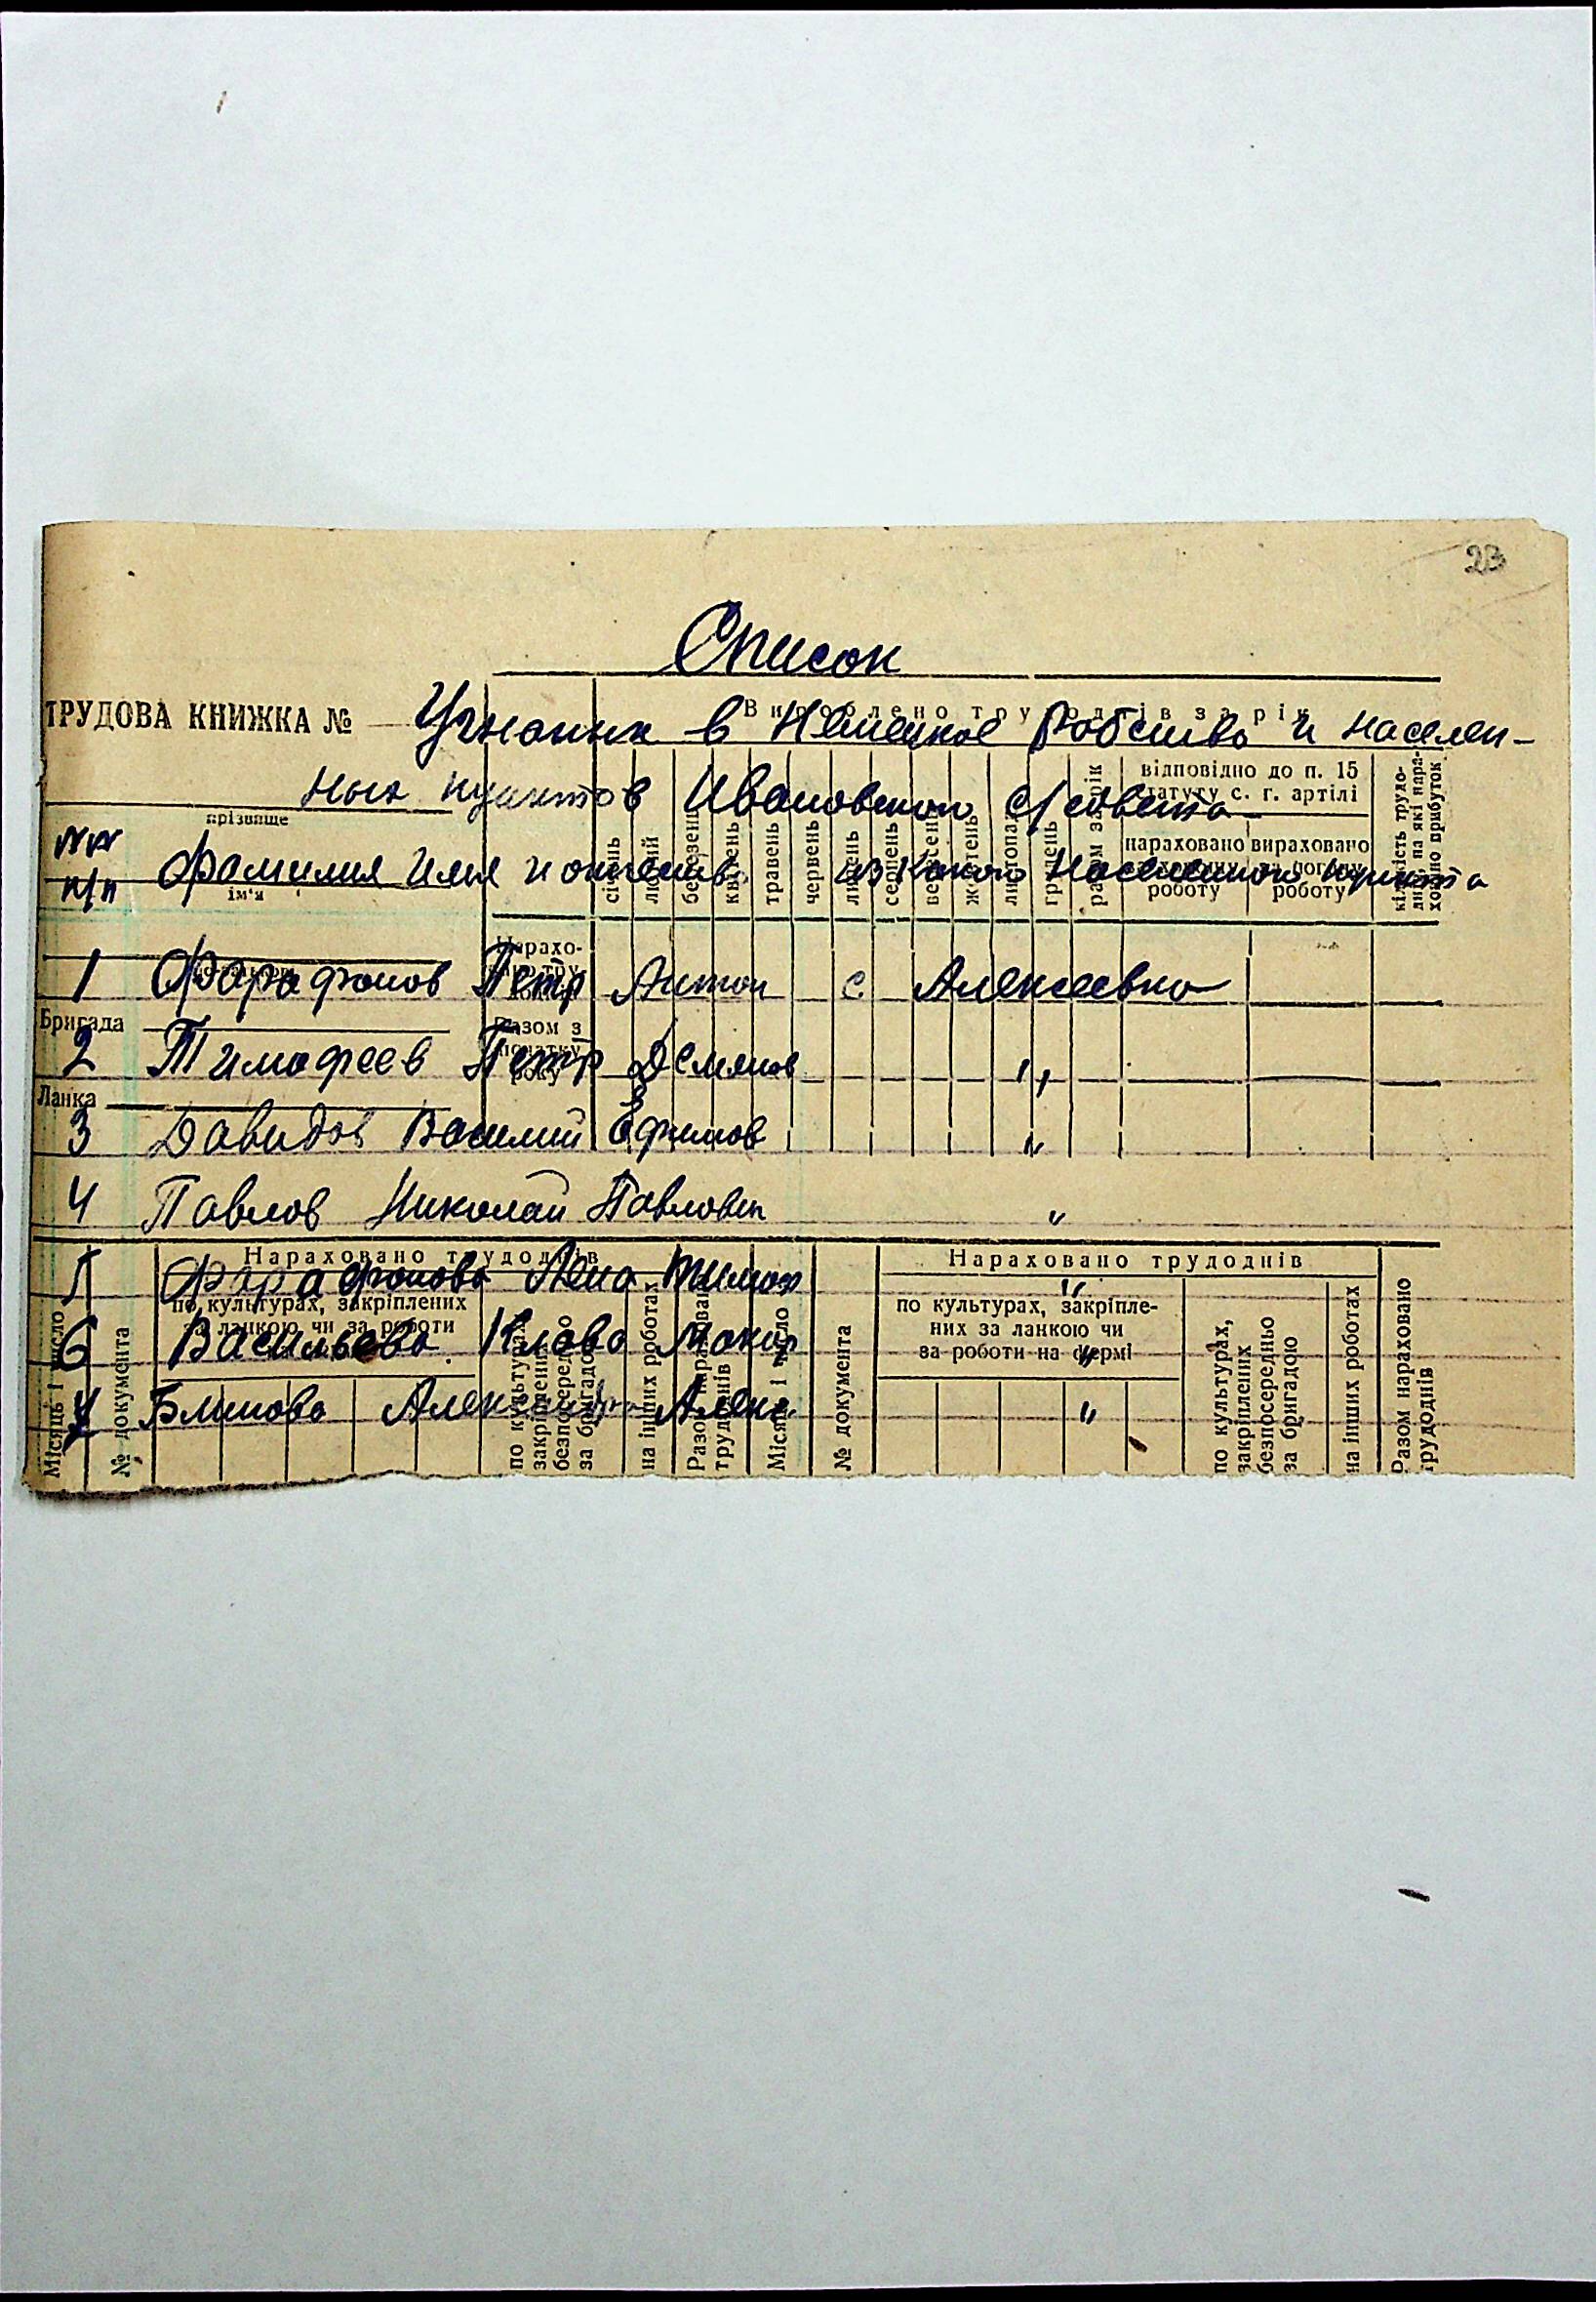 23
Список
ТРУДОВА КНИЖКА №
Вироблено трудоднів за рік
Угнанных в Немецкое Рабство и населен-
ных пунктов Ивановского с/совета
відповідно до п. 15
статуту с. г. артілі
прізвище
нараховано вираховано
роботу роботу
№№
п/п
Фамилия Имя и отчеств. из какого Населенного пункта
ім'я
січень
лютий
березень
квітень
травень
червень
липень
серпень
вересень
жовтень
листопад
грудень
разом за рік
кількість трудо-
днів, на які нара-
ховано прибуток
Нарахо-
1 Фарафонов Петр Антон с. Алексеевка
Бригада
Разом з
початку
року
2 Тимофеев Петр Демянов „
Ланка
3 Давидов Василий Ефимов „
4 Павлов Николай Павлович „
Нараховано трудоднів
Нараховано трудоднів
5 Фарафонова Лена Тимоф „
по культурах, закріплених
за ланкою чи за роботи
по культурах, закріпле-
них за ланкою чи
за роботи на фермі
6 Васильева Клава Макар „
7 Блинова Александр Алекс. „
Місяць і число
№ документа
по культурах,
закріплених
безпосередньо
за бригадою
на інших роботах
Разом нараховано
трудоднів
Місяць і число
№ документа
по культурах,
закріплених
безпосередньо
за бригадою
на інших роботах
Разом нараховано
трудоднів